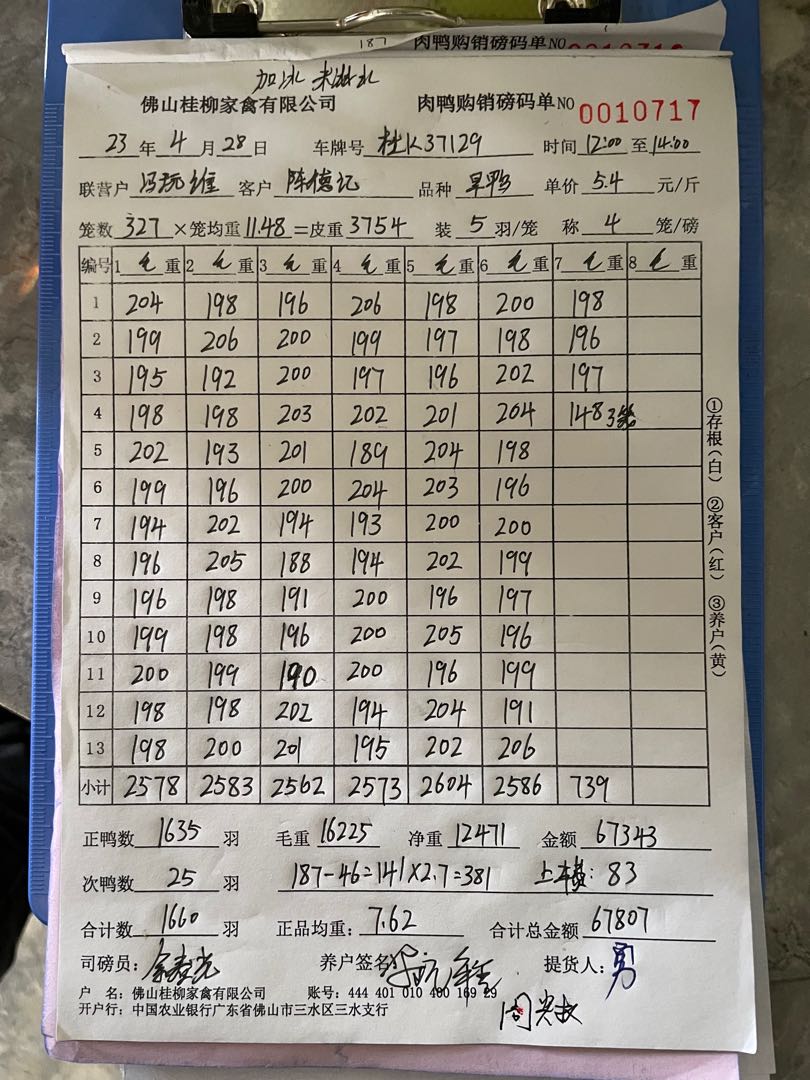 187 肉鸭购销磅码单 NO 0010716
加冰 未淋水
佛山桂柳家禽有限公司 肉鸭购销磅码单 NO 0010717
23 年 4 月 28 日 车牌号 桂K37129 时间 12:00 至 14:00
联营户 冯玩维 客户 陈德记 品种 旱鸭 单价 5.4 元/斤
笼数 327 ×笼均重 11.48 =皮重 3754 装 5 羽/笼 称 4 笼/磅
编号 1 毛 重 2 毛 重 3 毛 重 4 毛 重 5 毛 重 6 毛 重 7 毛 重 8 毛 重
1 204 198 196 206 198 200 198
2 199 206 200 199 197 198 196
3 195 192 200 197 196 202 197
4 198 198 203 202 201 204 148 3笼
5 202 193 201 189 204 198
6 199 196 200 204 203 196
7 194 202 194 193 200 200
8 196 205 188 194 202 199
9 196 198 191 200 196 197
10 199 198 196 200 205 196
11 200 199 190 200 196 199
12 198 198 202 194 204 191
13 198 200 201 195 202 206
小计 2578 2583 2562 2573 2604 2586 739
①存根(白) ②客户(红) ③养户(黄)
正鸭数 1635 羽 毛重 16225 净重 12471 金额 67343
次鸭数 25 羽 187-46=141×2.7=381 上车费: 83
合计数 1660 羽 正品均重: 7.62 合计总金额 67807
司磅员: 养户签名: 提货人: 勇
户 名: 佛山桂柳家禽有限公司 账号: 444 401 010 400 169 29
开户行: 中国农业银行广东省佛山市三水区三水支行